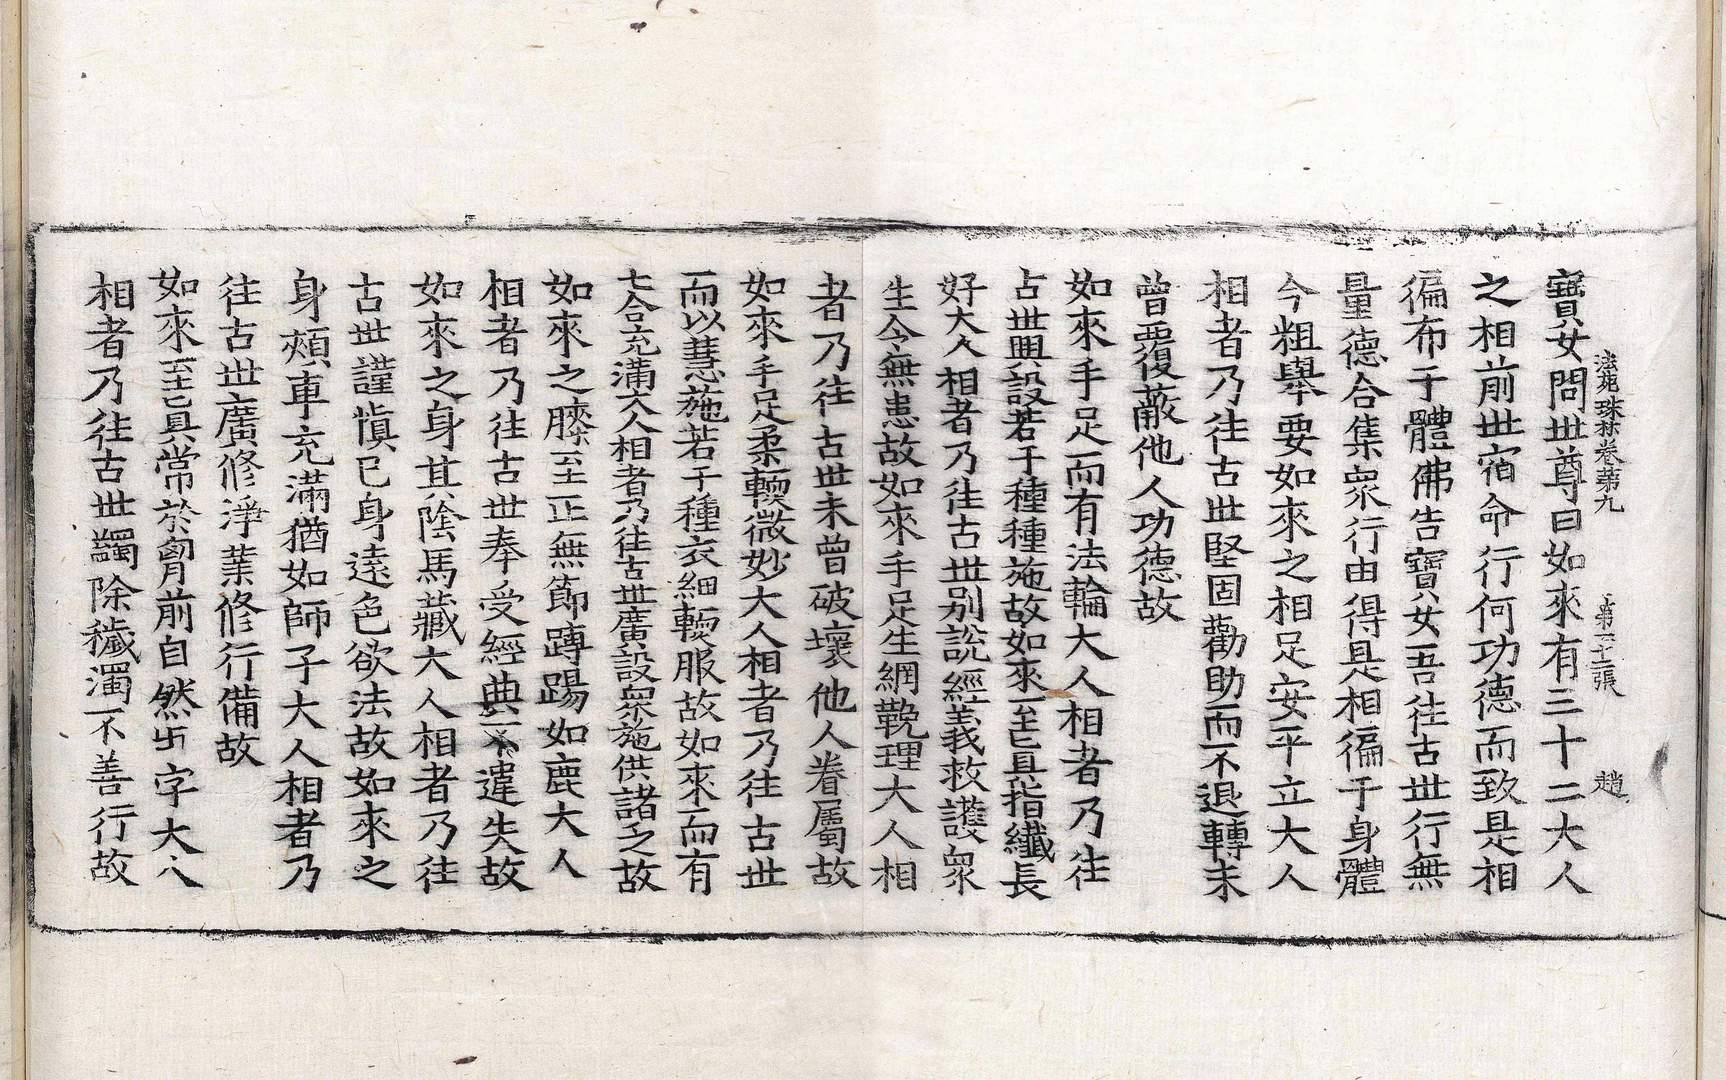 法苑珠林卷第九　第三十二張　趙
寶女問世尊曰如來有三十二大人
之相前世宿命行何功德而致是相
徧布于體佛告寶女吾往古世行無
量德合集衆行由得是相徧于身體
今粗舉要如來之相足安平立大人
相者乃往古世堅固勸助而不退轉未
曾覆蔽他人功德故
如來手足而有法輪大人相者乃往
古世興設若干種種施故如來至真指纖長
好大人相者乃往古世別說經義救護衆
生令無患故如來手足生網鞔理大人相
者乃往古世未曾破壞他人眷屬故
如來手足柔輭微妙大人相者乃往古世
而以慧施若干種衣細輭服故如來而有
七合充滿大人相者乃往古世廣設衆施供諸乏故
如來之膝至正無節踌踼如鹿大人
相者乃往古世奉受經典不違失故
如來之身其陰馬藏大人相者乃往
古世謹愼已身遠色欲法故如來之
身頰車充滿猶如師子大人相者乃
往古世廣修淨業修行備故
如來至真常於胷前自然卍字大人
相者乃往古世蠲除穢濁不善行故